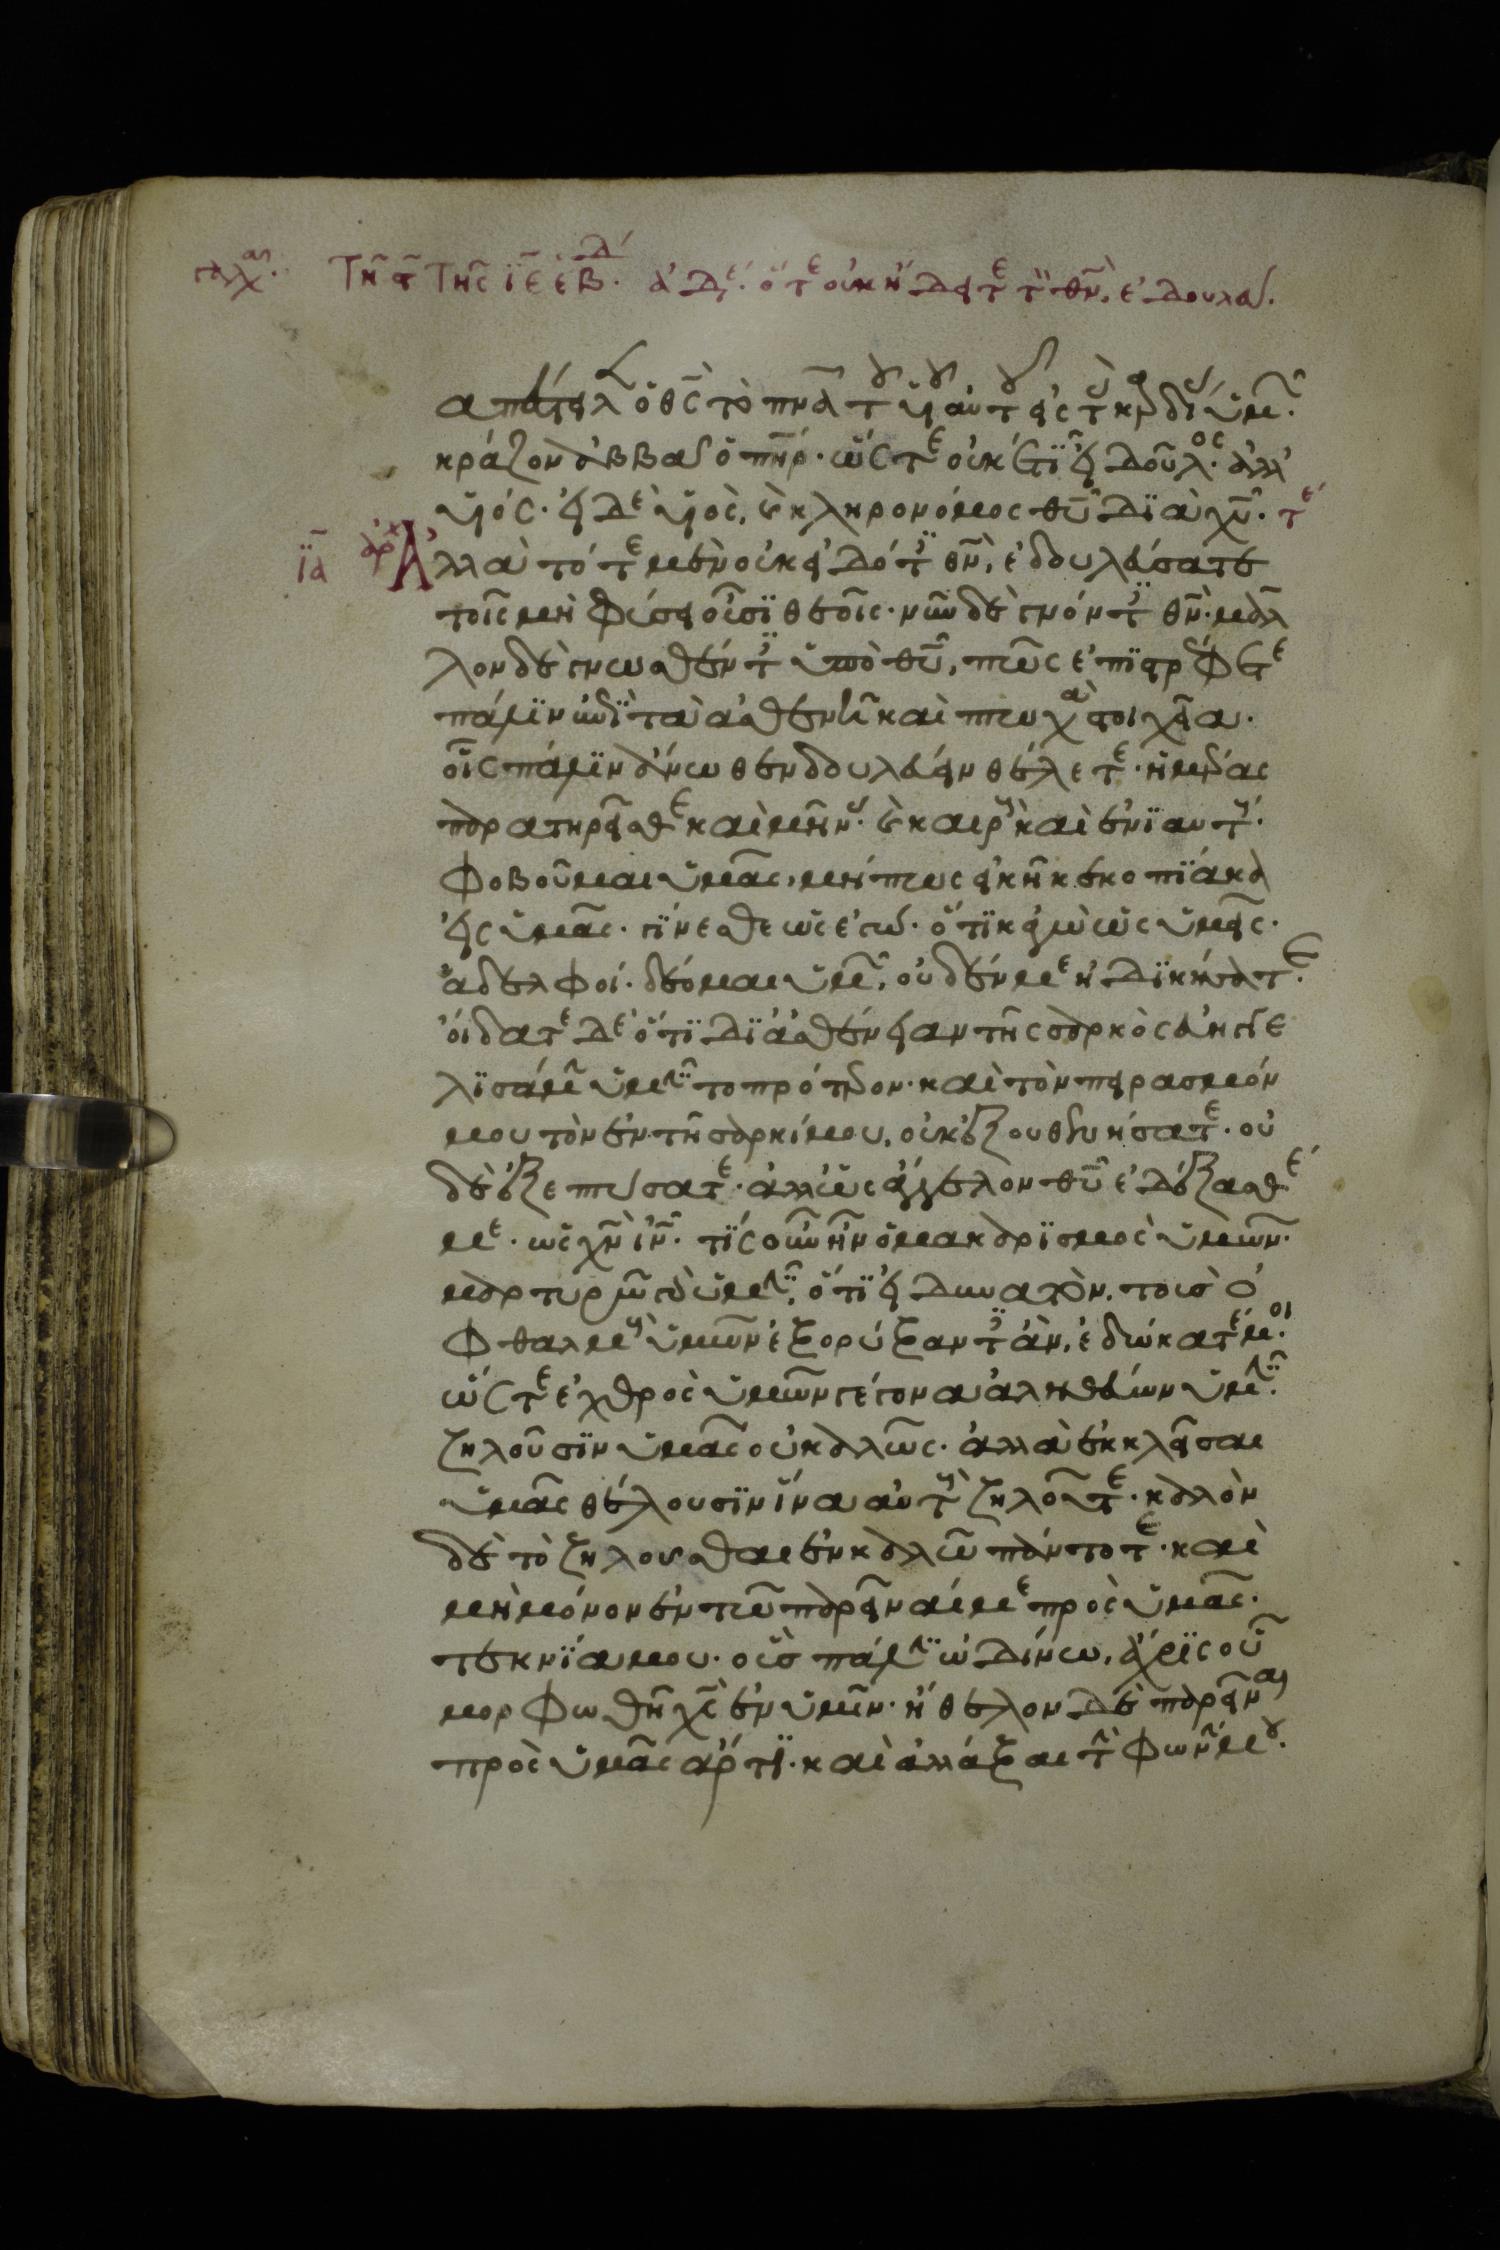 Τῆ ϛ̄ τῆς ῑε ἑβδ. ἀδε. ὅτε οὐκ ᾔδειτε τὸν θν̄, ἐδουλεύ.
απέστειλεν ὁ θς̄ τὸ πνᾱ τοῦ υἱοῦ αὐτοῦ εἰς τὰς καρδίας ὑμῶν.
κράζον ἀββα ὁ πηρ̄. ὥστε οὐκέτι εἶ δοῦλος. ἀλλ'
υἱός. εἰ δὲ υἱὸς, καὶ κληρονόμος θῡ διὰ χῡ. τε
ῑα ἀρχ Ἀλλὰ τότε μὲν οὐκ εἰδότες θν̄, ἐδουλεύσατε
τοῖς μὴ φύσει οὖσι θεοῖς. νῦν δὲ γνόντες θν̄. μᾶλ
λον δὲ γνωσθέντες ὑπὸ θῡ, πῶς ἐπιστρέφετε
πάλιν ἐπὶ τὰ ἀσθενῆ καὶ πτωχὰ στοιχεῖα.
οἷς πάλιν ἄνωθεν δουλεύειν θέλετε. ἡμέρας
παρατηρεῖσθε καὶ μῆνας. καὶ καιροὺς καὶ ἐνιαυτούς.
Φοβοῦμαι ὑμᾶς, μήπως εἰκῆ κεκοπίακα
εἰς ὑμᾶς. γίνεσθε ὡς ἐγώ. ὅτι κἀγὼ ὡς ὑμεῖς.
ἀδελφοί. δέομαι ὑμῶν, οὐδέν με ἠδικήσατε.
οἴδατε δὲ ὅτι δι ἀσθένειαν τῆς σαρκὸς εὐηγγε
λισάμην ὑμῖν το πρότερον. καὶ τὸν πειρασμόν
μου τὸν ἐν τῆ σαρκί μου, οὐκ ἐξουθενήσατε. οὐ
δὲ ἐξεπτύσατε. ἀλλ' ὡς ἄγγελον θῡ ἐδέξασθέ
με. ὡς χν̄ ιν̄. τίς οὖν ἦν ὁ μακαρισμὸς ὑμῶν.
μαρτυρῶ γὰρ ὑμῖν, ὅτι εἰ δυνατὸν, τοὺς ὀ
φθαλμοὺς ὑμῶν ἐξορύξαντες ἂν, ἐδώκατέ μοι.
ὥστε ἐχθρὸς ὑμῶν γέγονα ἀληθεύων ὑμῖν.
ζηλοῦσιν ὑμᾶς οὐ καλῶς. ἀλλὰ ἐκκλεῖσαι
ὑμᾶς θέλουσιν ἵνα αὐτοὺς ζηλοῦτε. καλὸν
δὲ τὸ ζηλοῦσθαι ἐν καλῶ πάντοτε. καὶ
μὴ μόνον ἐν τῶ παρεῖναί με πρὸς ὑμᾶς.
τεκνία μου. οὓς πάλιν ὠδίνω, ἄχρις οὗ
μορφωθῆ χς̄ ἐν ὑμῖν. ἤθελον δὲ παρεῖναι
πρὸς ὑμᾶς ἄρτι. καὶ ἀλλάξαι τὴν φωνήν μου.